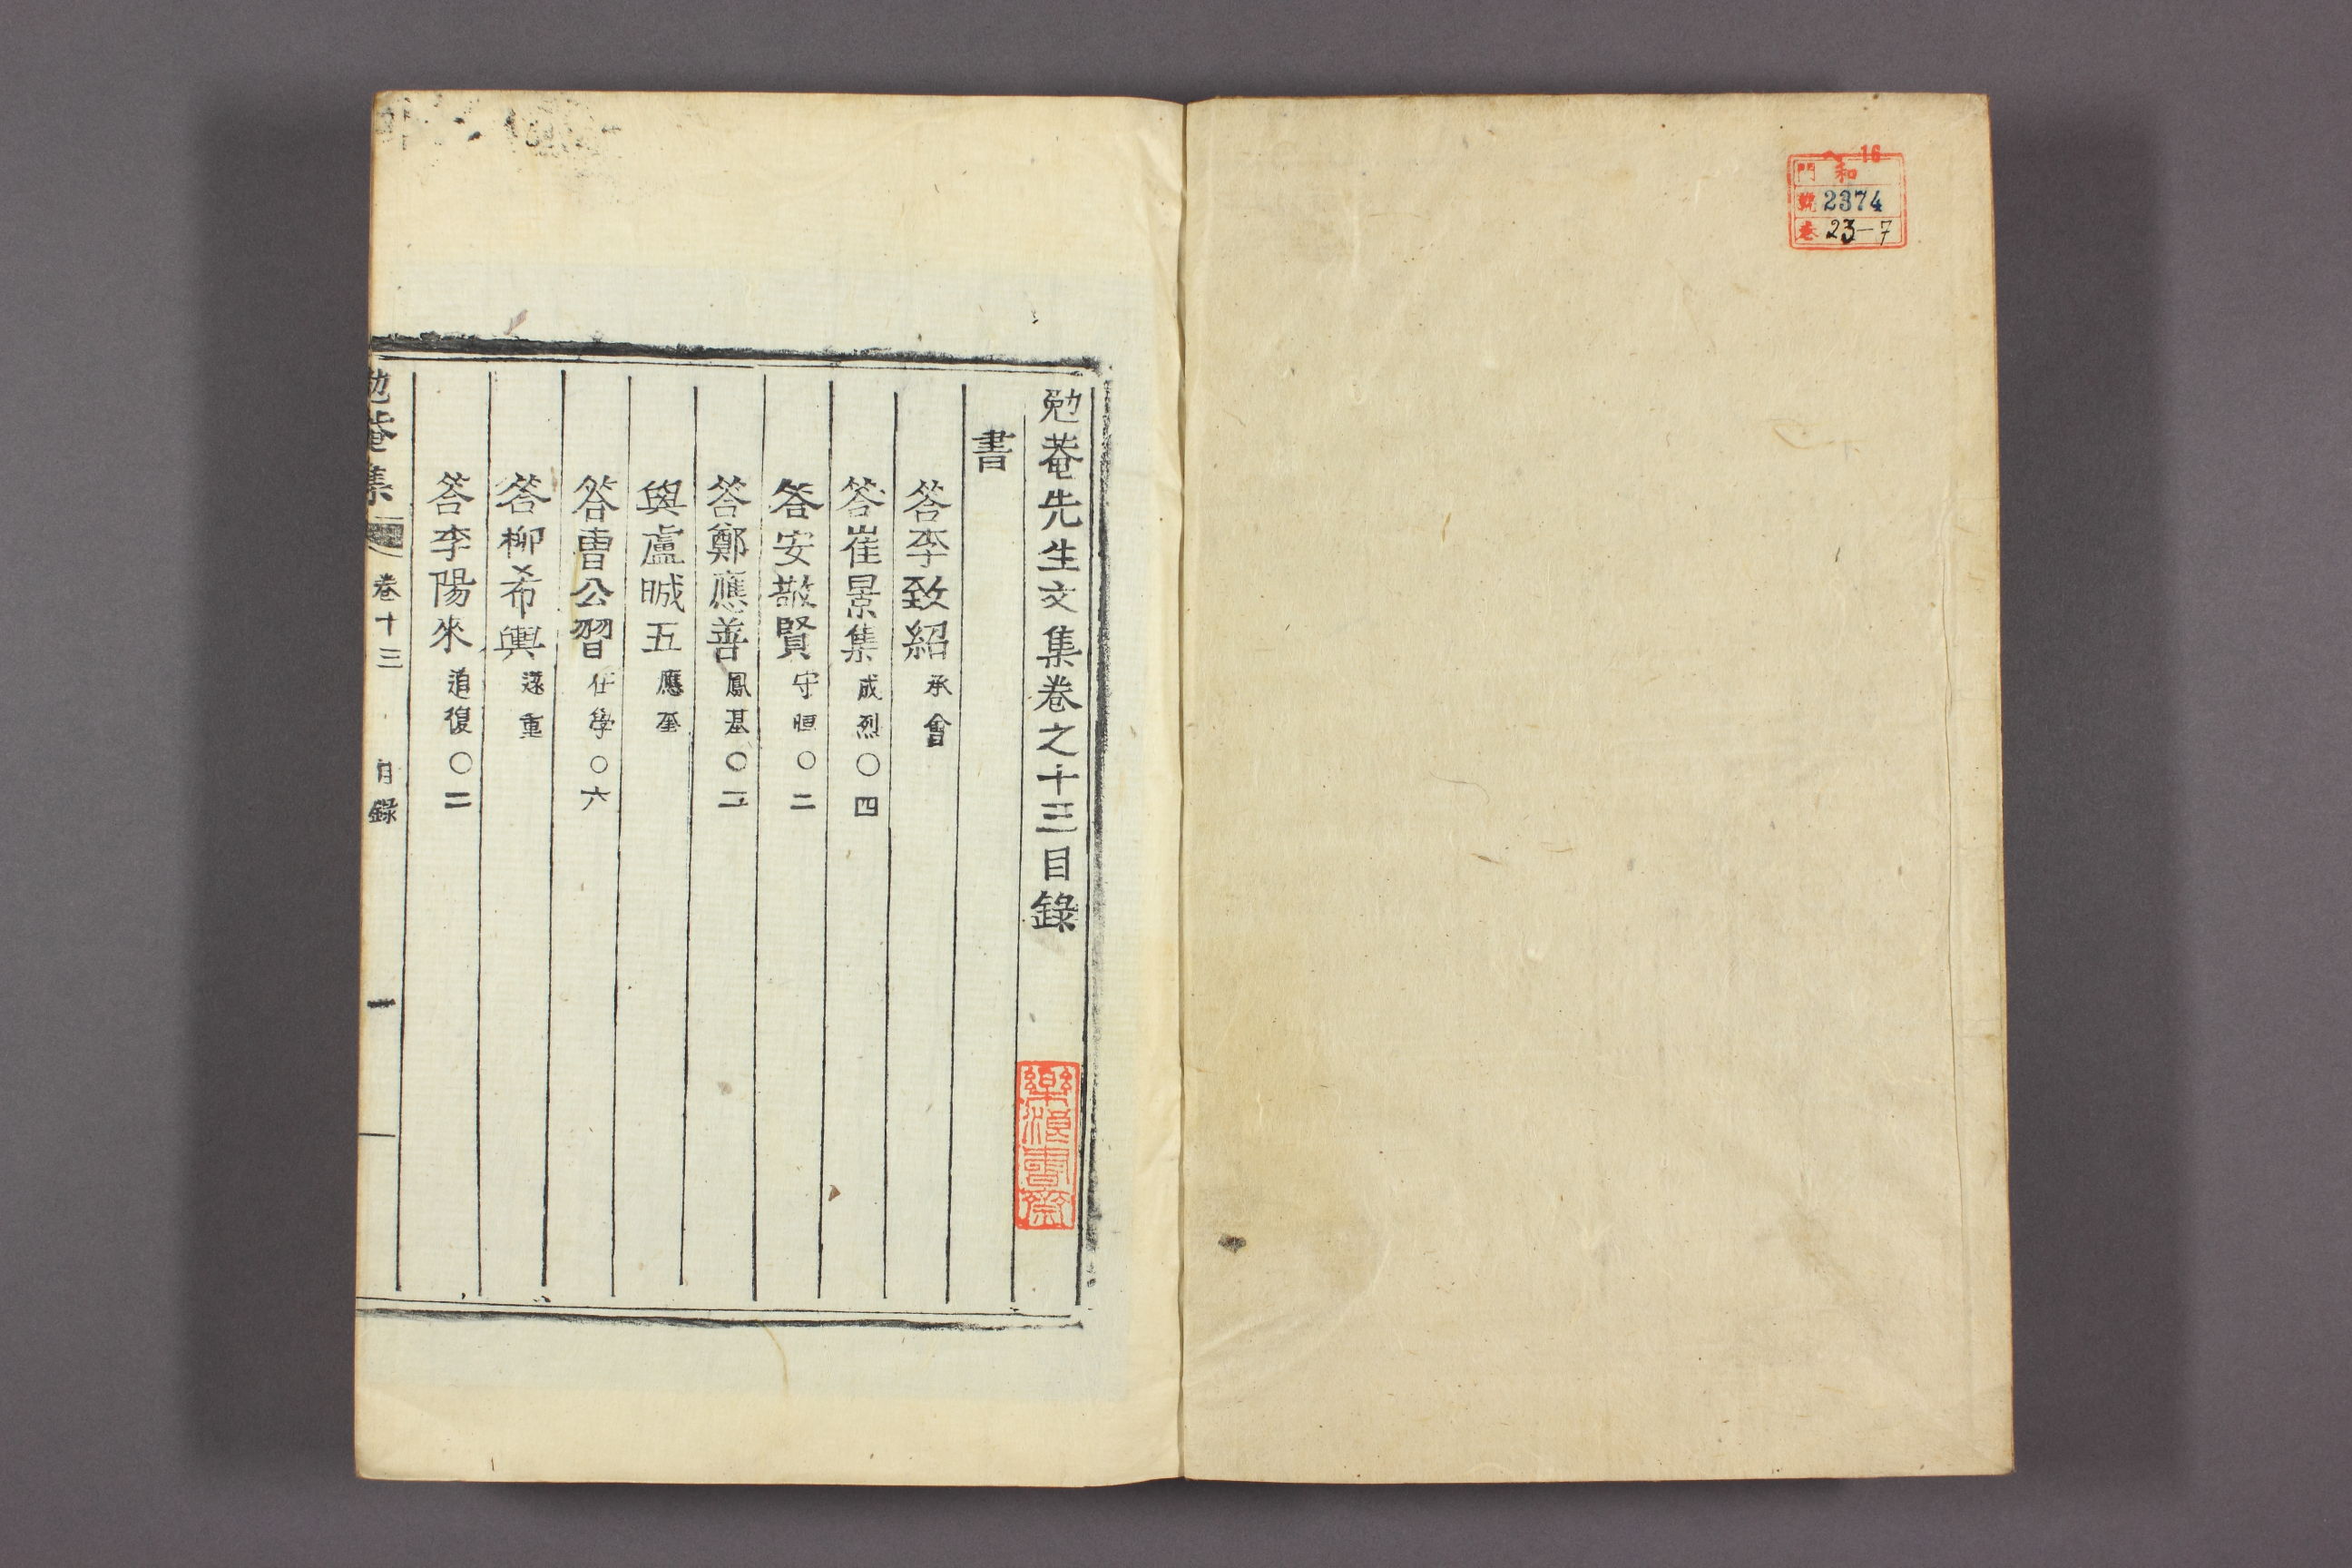 16
門 和
號 2374
卷 23-7
勉菴先生文集卷之十三目錄
樂浪書齋
書
答李致紹 承會
答崔景集 成烈○四
答安敬賢 守恒○二
答鄭應善 鳳基○二
與盧晠五 應奎
答曺公習 仕學○六
答柳希輿 遠重
答李陽來 道復○二
勉菴集 卷十三 目錄 一